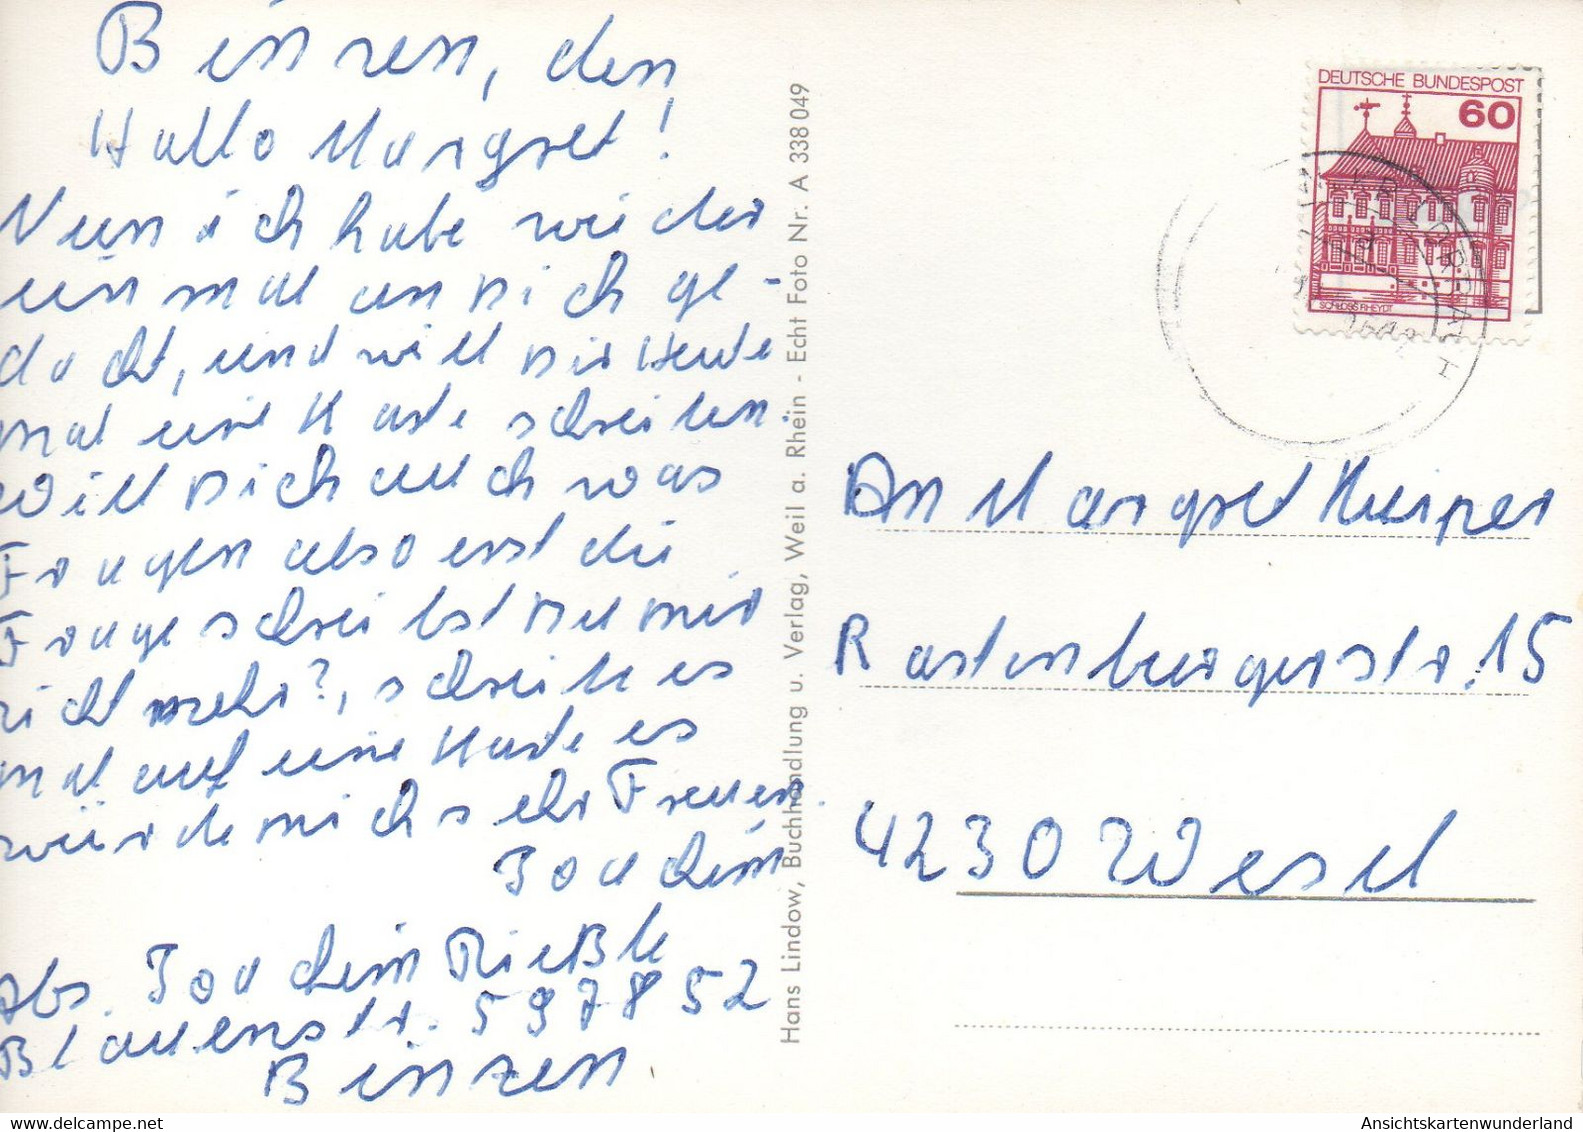 Binzen, den
Hallo Margret!
Nun ich habe wieder
einmal an Dich ge-
dacht, und will Dir Heute
mal eine Karte schreiben.
Will Dich auch was
Fragen also erst die
Frage schreibst Du mir
nicht mehr?, schreibe es
mal auf eine Karte es
würde mich sehr Freuen.
Joachim
Abs. Joachim Rießle
Blauenstr. 5 97852
Binzen
Hans Lindow, Buchhandlung u. Verlag, Weil a. Rhein - Echt Foto Nr. A 338 049
DEUTSCHE BUNDESPOST
60
SCHLOSS RHEYDT
An Margret Kuiper
Rastenburgerstr. 15
4230 Wesel
Ansichtskartenwunderland